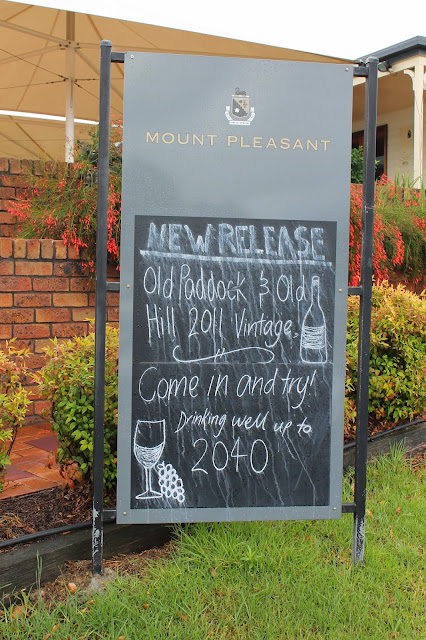 MOUNT PLEASANT
NEW RELEASE
Old Paddock & Old
Hill 2011 Vintage.
Come in and try!
Drinking well up to
2040